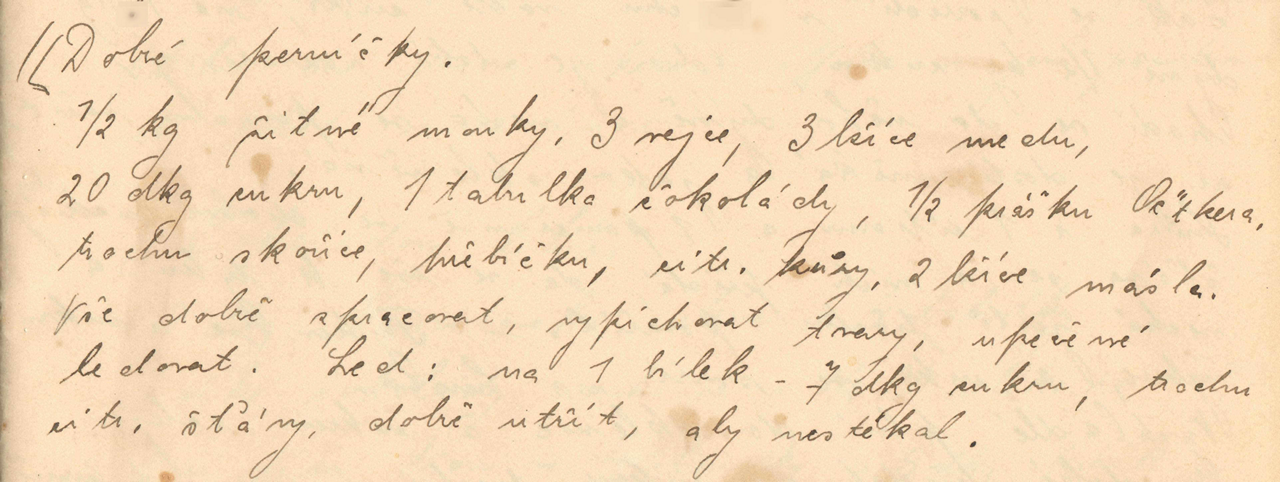 Dobré perníčky.
1/2 kg žitné mouky, 3 vejce, 3 lžíce medu,
20 dkg cukru, 1 tabulka čokolády, 1/2 prášku Oetkera,
trochu skořice, hřebíčku, citr. kůry, 2 lžíce másla.
Vše dobře zpracovat, vypichovat tvary, upečené
ledovat. Led: na 1 bílek - 7 dkg cukru, trochu
citr. šťávy, dobře utřít, aby nestékal.